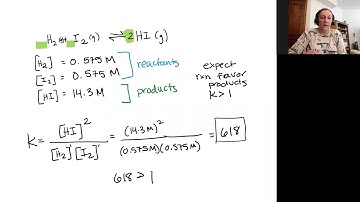 H₂ (g) + I₂ (g) ⇌ 2 HI (g)
[H₂] = 0.575 M
[I₂] = 0.575 M
reactants
[HI] = 14.3 M
products
expect
rxn favor
products
K > 1
K = [HI]² / [H₂]¹[I₂]¹ = (14.3 M)² / (0.575 M)(0.575 M) = 618
618 > 1